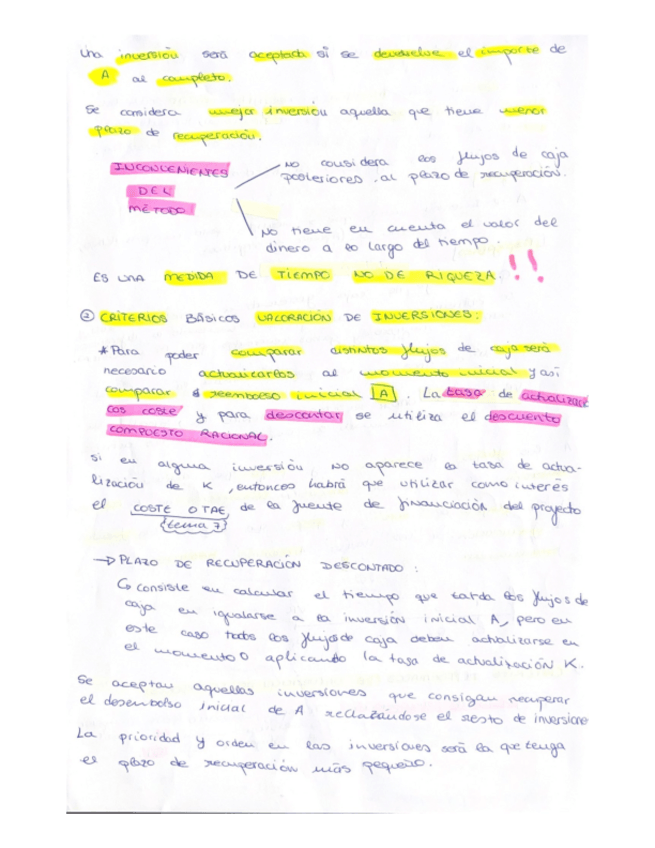 Una inversión será aceptada si se devuelve el importe de
A al completo.
Se considera mejor inversión aquella que tiene menor
plazo de recuperación.
INCONVENIENTES
DEL
MÉTODO
NO considera los flujos de caja
posteriores al plazo de recuperación.
NO tiene en cuenta el valor del
dinero a lo largo del tiempo.
ES UNA MEDIDA DE TIEMPO NO DE RIQUEZA. !!
② CRITERIOS BÁSICOS VALORACIÓN DE INVERSIONES:
* Para poder comparar distintos flujos de caja será
necesario actualizarlos al momento inicial y así
comparar desembolso inicial A. La tasa de actualizar
cos coste y para descontar se utiliza el descuento
COMPUESTO RACIONAL.
Si en alguna inversión no aparece la tasa de actua-
lización de K, entonces habrá que utilizar como interés
el COSTE O TAE, de la fuente de financiación del proyecto
(tema 7)
→ PLAZO DE RECUPERACIÓN DESCONTADO:
↳ consiste en calcular el tiempo que tarda los flujos de
caja en igualarse a la inversión inicial A, pero en
este caso todos los flujos de caja deben actualizarse en
el momento 0 aplicando la tasa de actualización K.
Se aceptan aquellas inversiones que consigan recuperar
el desembolso inicial de A rechazándose el resto de inversione
La prioridad y orden en las inversiones será la que tenga
el plazo de recuperación más pequeño.